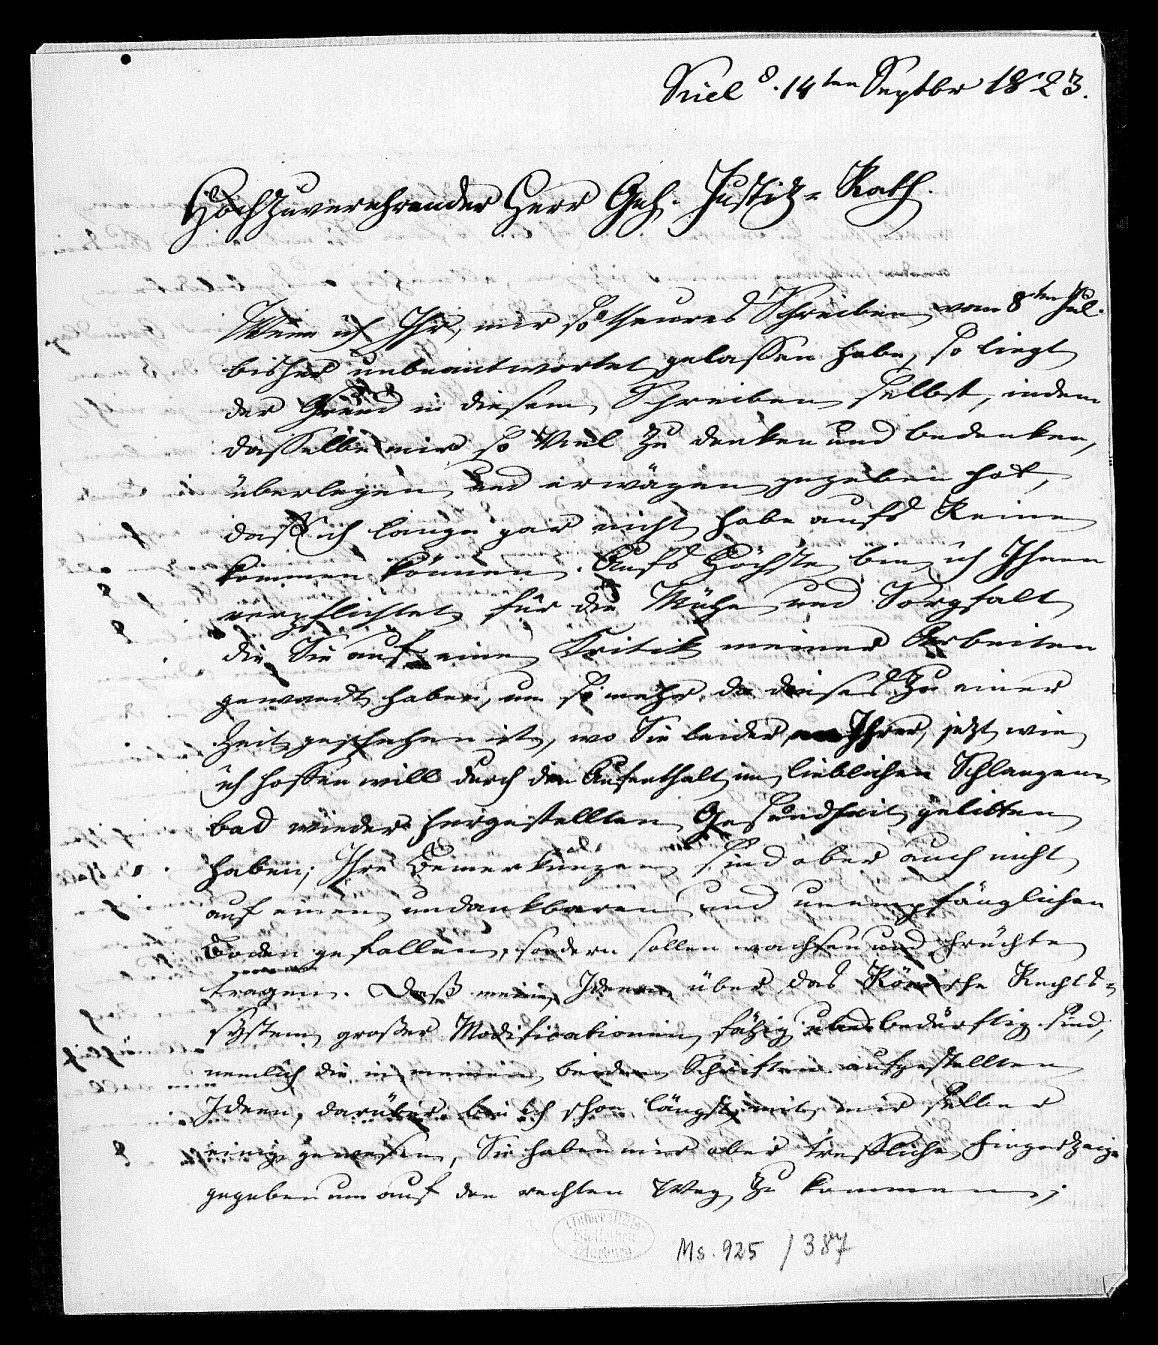 Kiel d. 14ten Septbr 1823.
Hochzuverehrender Herr Geh. Justiz-Rath.
Wenn ich Ihr, mir so theures Schreiben vom 8ten Jul.
bisher unbeantwortet gelassen habe, so liegt
der Grund in diesem Schreiben selbst, indem
dasselbe mir so Viel zu denken und bedenken,
überlegen und erwägen gegeben hat,
daß ich lange gar nicht habe aufs Reine
kommen können. Aufs Höchste bin ich Ihnen
verpflichtet für die Mühe und Sorgfalt
die Sie auf eine Kritik meiner Arbeiten
gewandt haben, um so mehr da dieses zu einer
Zeit geschehen ist, wo Sie leider an Ihrer, jetzt wie
ich hoffen will durch den Aufenthalt im lieblichen Schlangen-
bad wieder hergestellten Gesundheit gelitten
haben; Ihre Bemerkungen sind aber auch nicht
auf einen undankbaren und unempfänglichen
Boden gefallen, sondern sollen wachsen und Früchte
tragen. Daß meine Ideen über das Römische Rechts-
system großer Modificationen fähig und bedürftig sind,
nemlich die in meinen beiden Schriften aufgestellten
Ideen, darüber bin ich schon längst mit mir selber
einig gewesen, Sie haben mir aber treffliche Fingerzeige
gegeben um auf den rechten Weg zu kommen;
Universitäts Bibliothek Marburg
Ms. 925 / 387